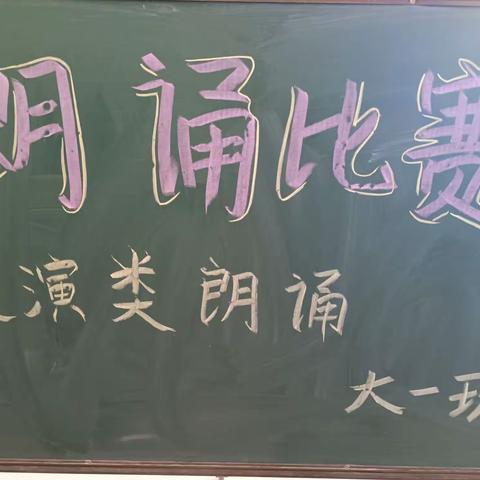 朗诵比赛
演类朗诵
大一班